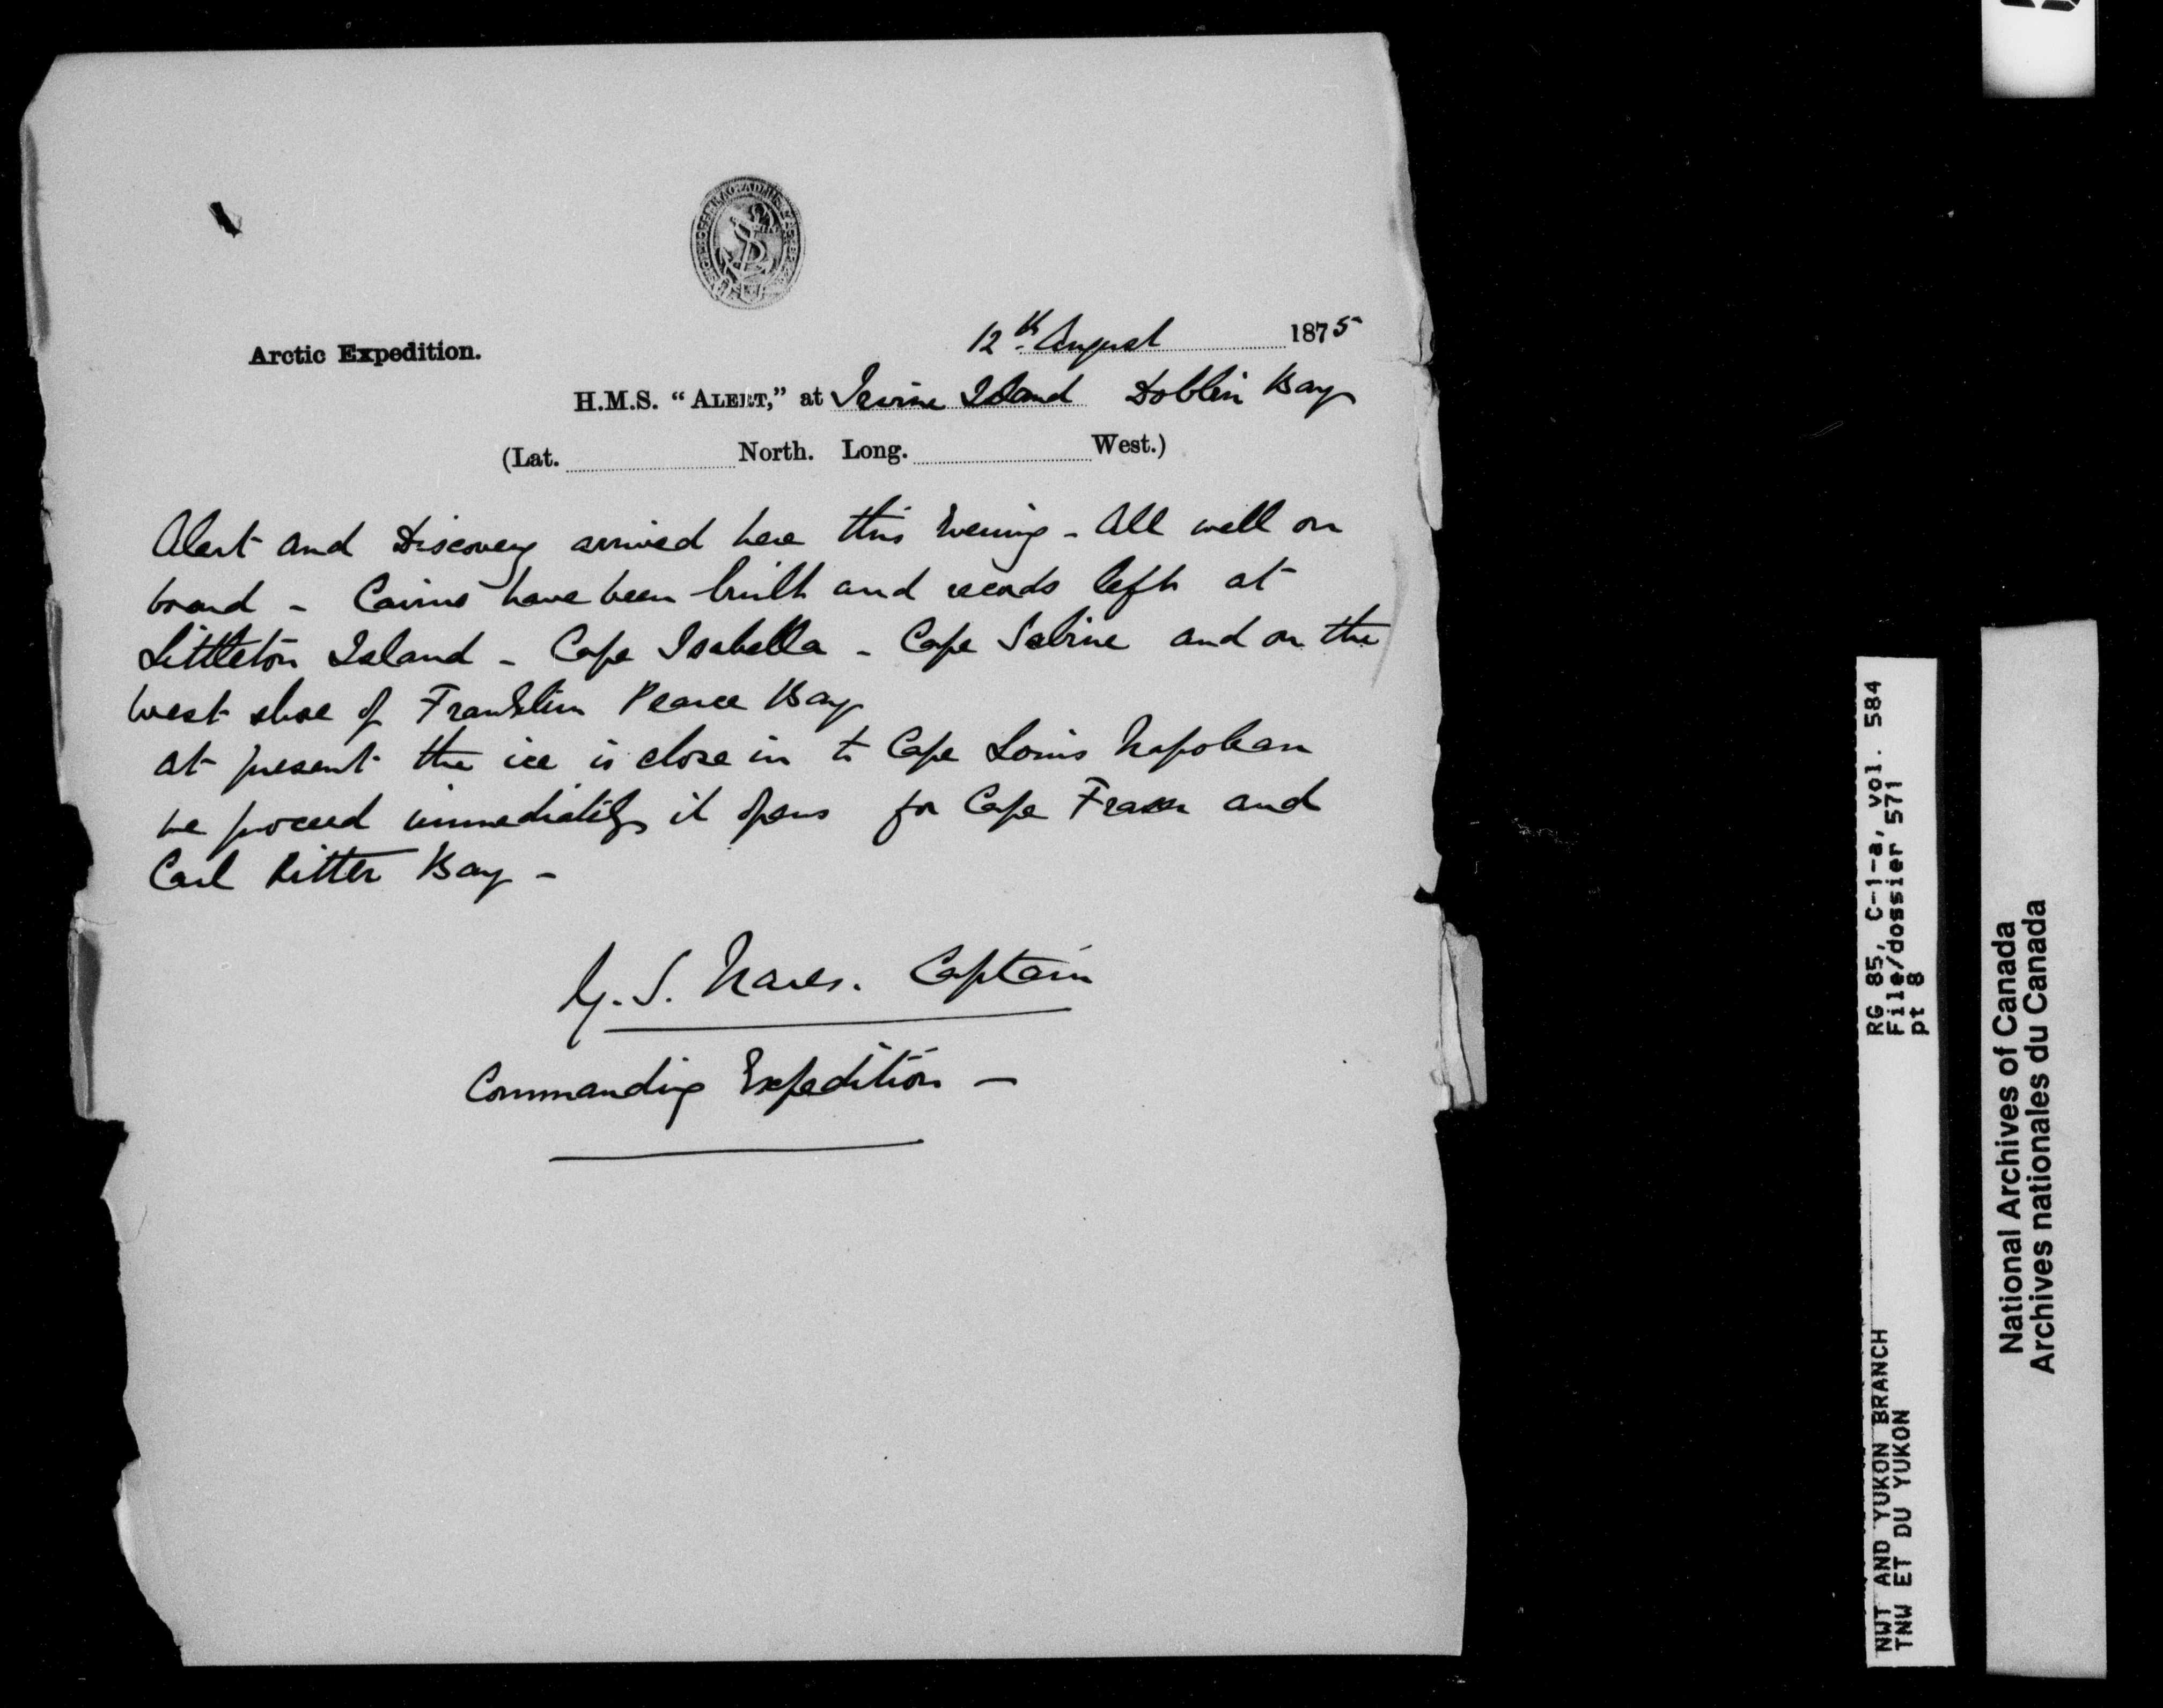 Arctic Expedition.
12th August 1875
H.M.S. "ALERT," at Irvine Island Dobbin Bay
(Lat. North. Long. West.)
Alert and Discovery arrived here this Evening - All well on
board - Cairns have been built and records left at
Littleton Island - Cape Isabella - Cape Sabine and on the
West shore of Franklin Pearce Bay
at present the ice is close in to Cape Louis Napolean
we proceed immediately it opens for Cape Fraser and
Carl Ritter Bay -
G. S. Nares. Captain
Commanding Expedition -
RG 85, C-1-a, vol. 584
File/dossier 571
pt 8
NWT AND YUKON BRANCH
TNW ET DU YUKON
National Archives of Canada
Archives nationales du Canada